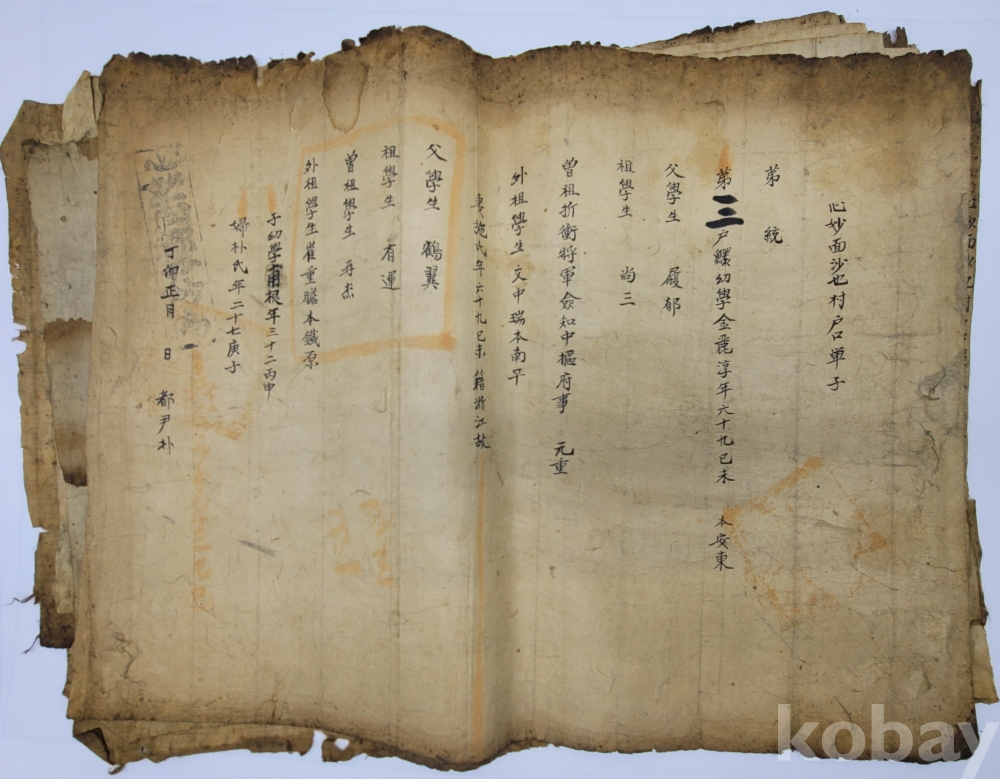 心妙面沙也村户口单子
第 統
第三户 幼學金麗淳年六十九己未 本安東
父學生 履郁
祖學生 尚三
曾祖折衝將軍僉知中樞府事 元重
外祖學生文中瑞本南平
妻施氏年六十九己未 籍浙江故
父學生 鶴翼
祖學生 有運
曾祖學生 再杰
外祖學生崔重瞻本鐵原
子幼學 根年三十二丙申
婦朴氏年二十七庚子
丁卯正月 日 都尹朴
kobay